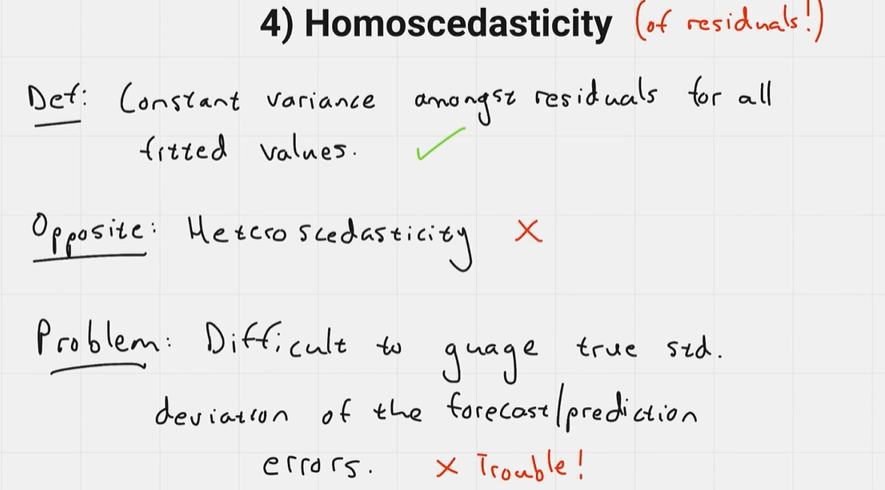 4) Homoscedasticity (of residuals!)
Def: Constant variance amongst residuals for all
fitted values. ✓
Opposite: Heteroscedasticity ✗
Problem: Difficult to guage true std.
deviation of the forecast/prediction
errors. ✗ Trouble!